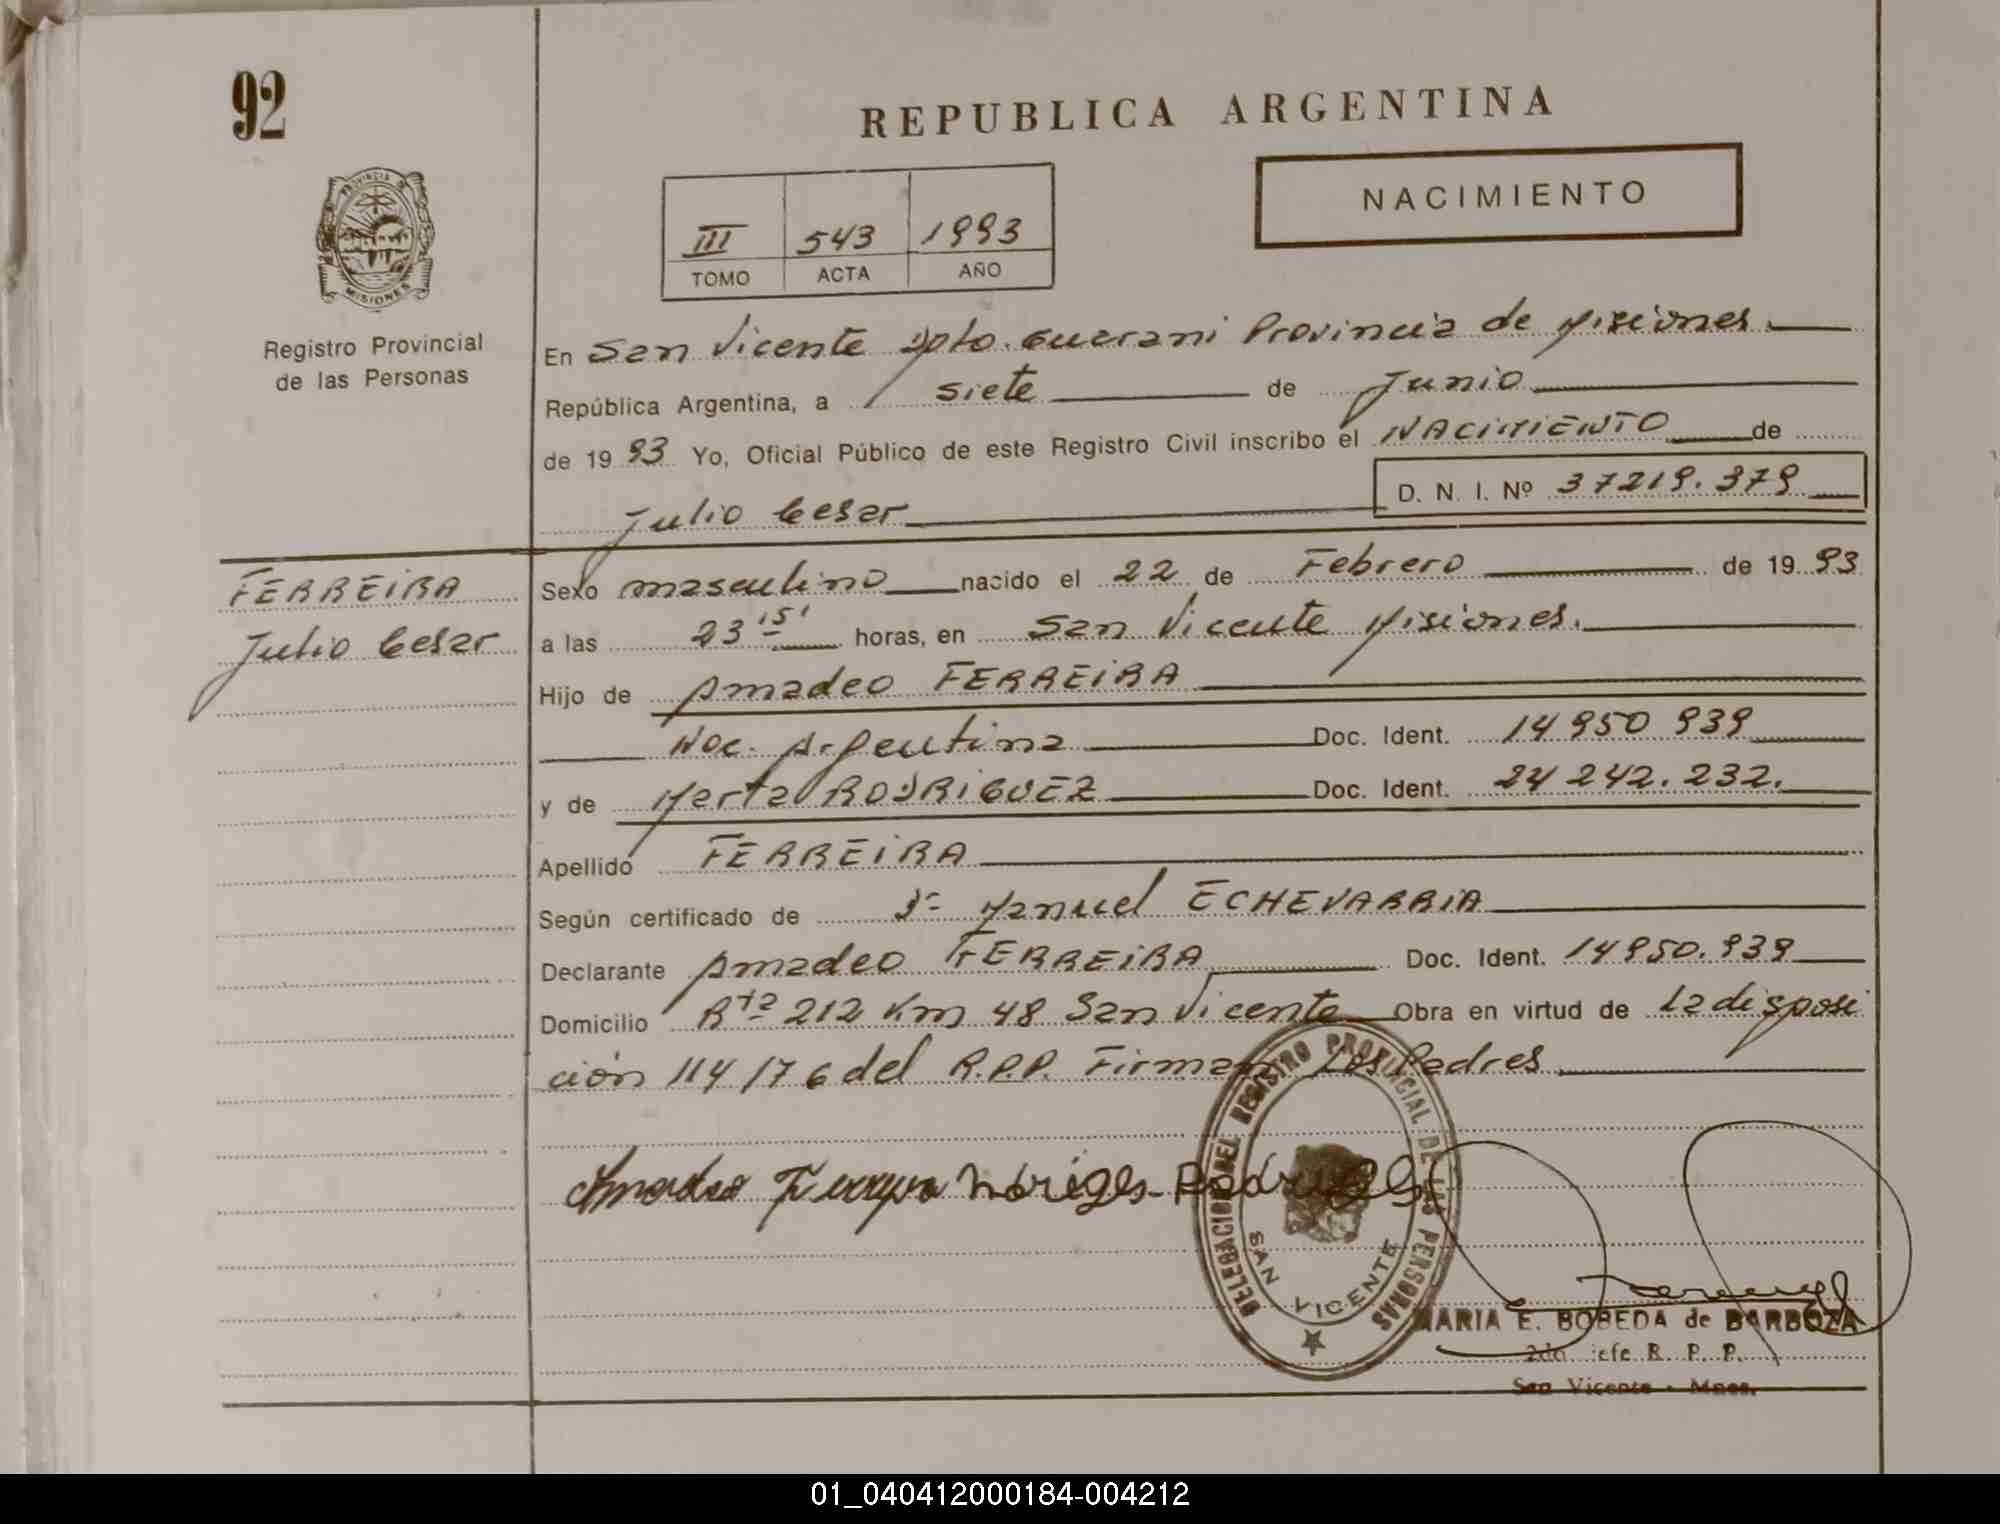 92
REPUBLICA ARGENTINA
PROVINCIA DE
MISIONES
Registro Provincial
de las Personas
III 543 1993
TOMO ACTA AÑO
NACIMIENTO
En San Vicente Dpto. Guarani Provincia de Misiones.
República Argentina, a siete de Junio
de 1993 Yo, Oficial Público de este Registro Civil inscribo el NACIMIENTO de
D. N. I. Nº 37219.379
Julio Cesar
FERREIRA
Julio Cesar
Sexo masculino nacido el 22 de Febrero de 1993
a las 23 15' horas, en San Vicente Misiones.
Hijo de Amadeo FERREIRA
Nac. Argentina Doc. Ident. 14 950 939
y de Marta RODRIGUEZ Doc. Ident. 24 242. 232.
Apellido FERREIRA
Según certificado de Dr Manuel ECHEVARRIA
Declarante Amadeo FERREIRA Doc. Ident. 14950.939
Domicilio Rta 212 Km 48 San Vicente Obra en virtud de la disposi
ción 114/76 del R.P.P. Firman Los Padres
Amadeo Rodrigues
DELEGACION DEL REGISTRO PROVINCIAL DE LAS PERSONAS
SAN VICENTE
MARIA E. BOBEDA de BARBOZA
2do jefe R. P. P.
San Vicente - Mnes.
01_040412000184-004212